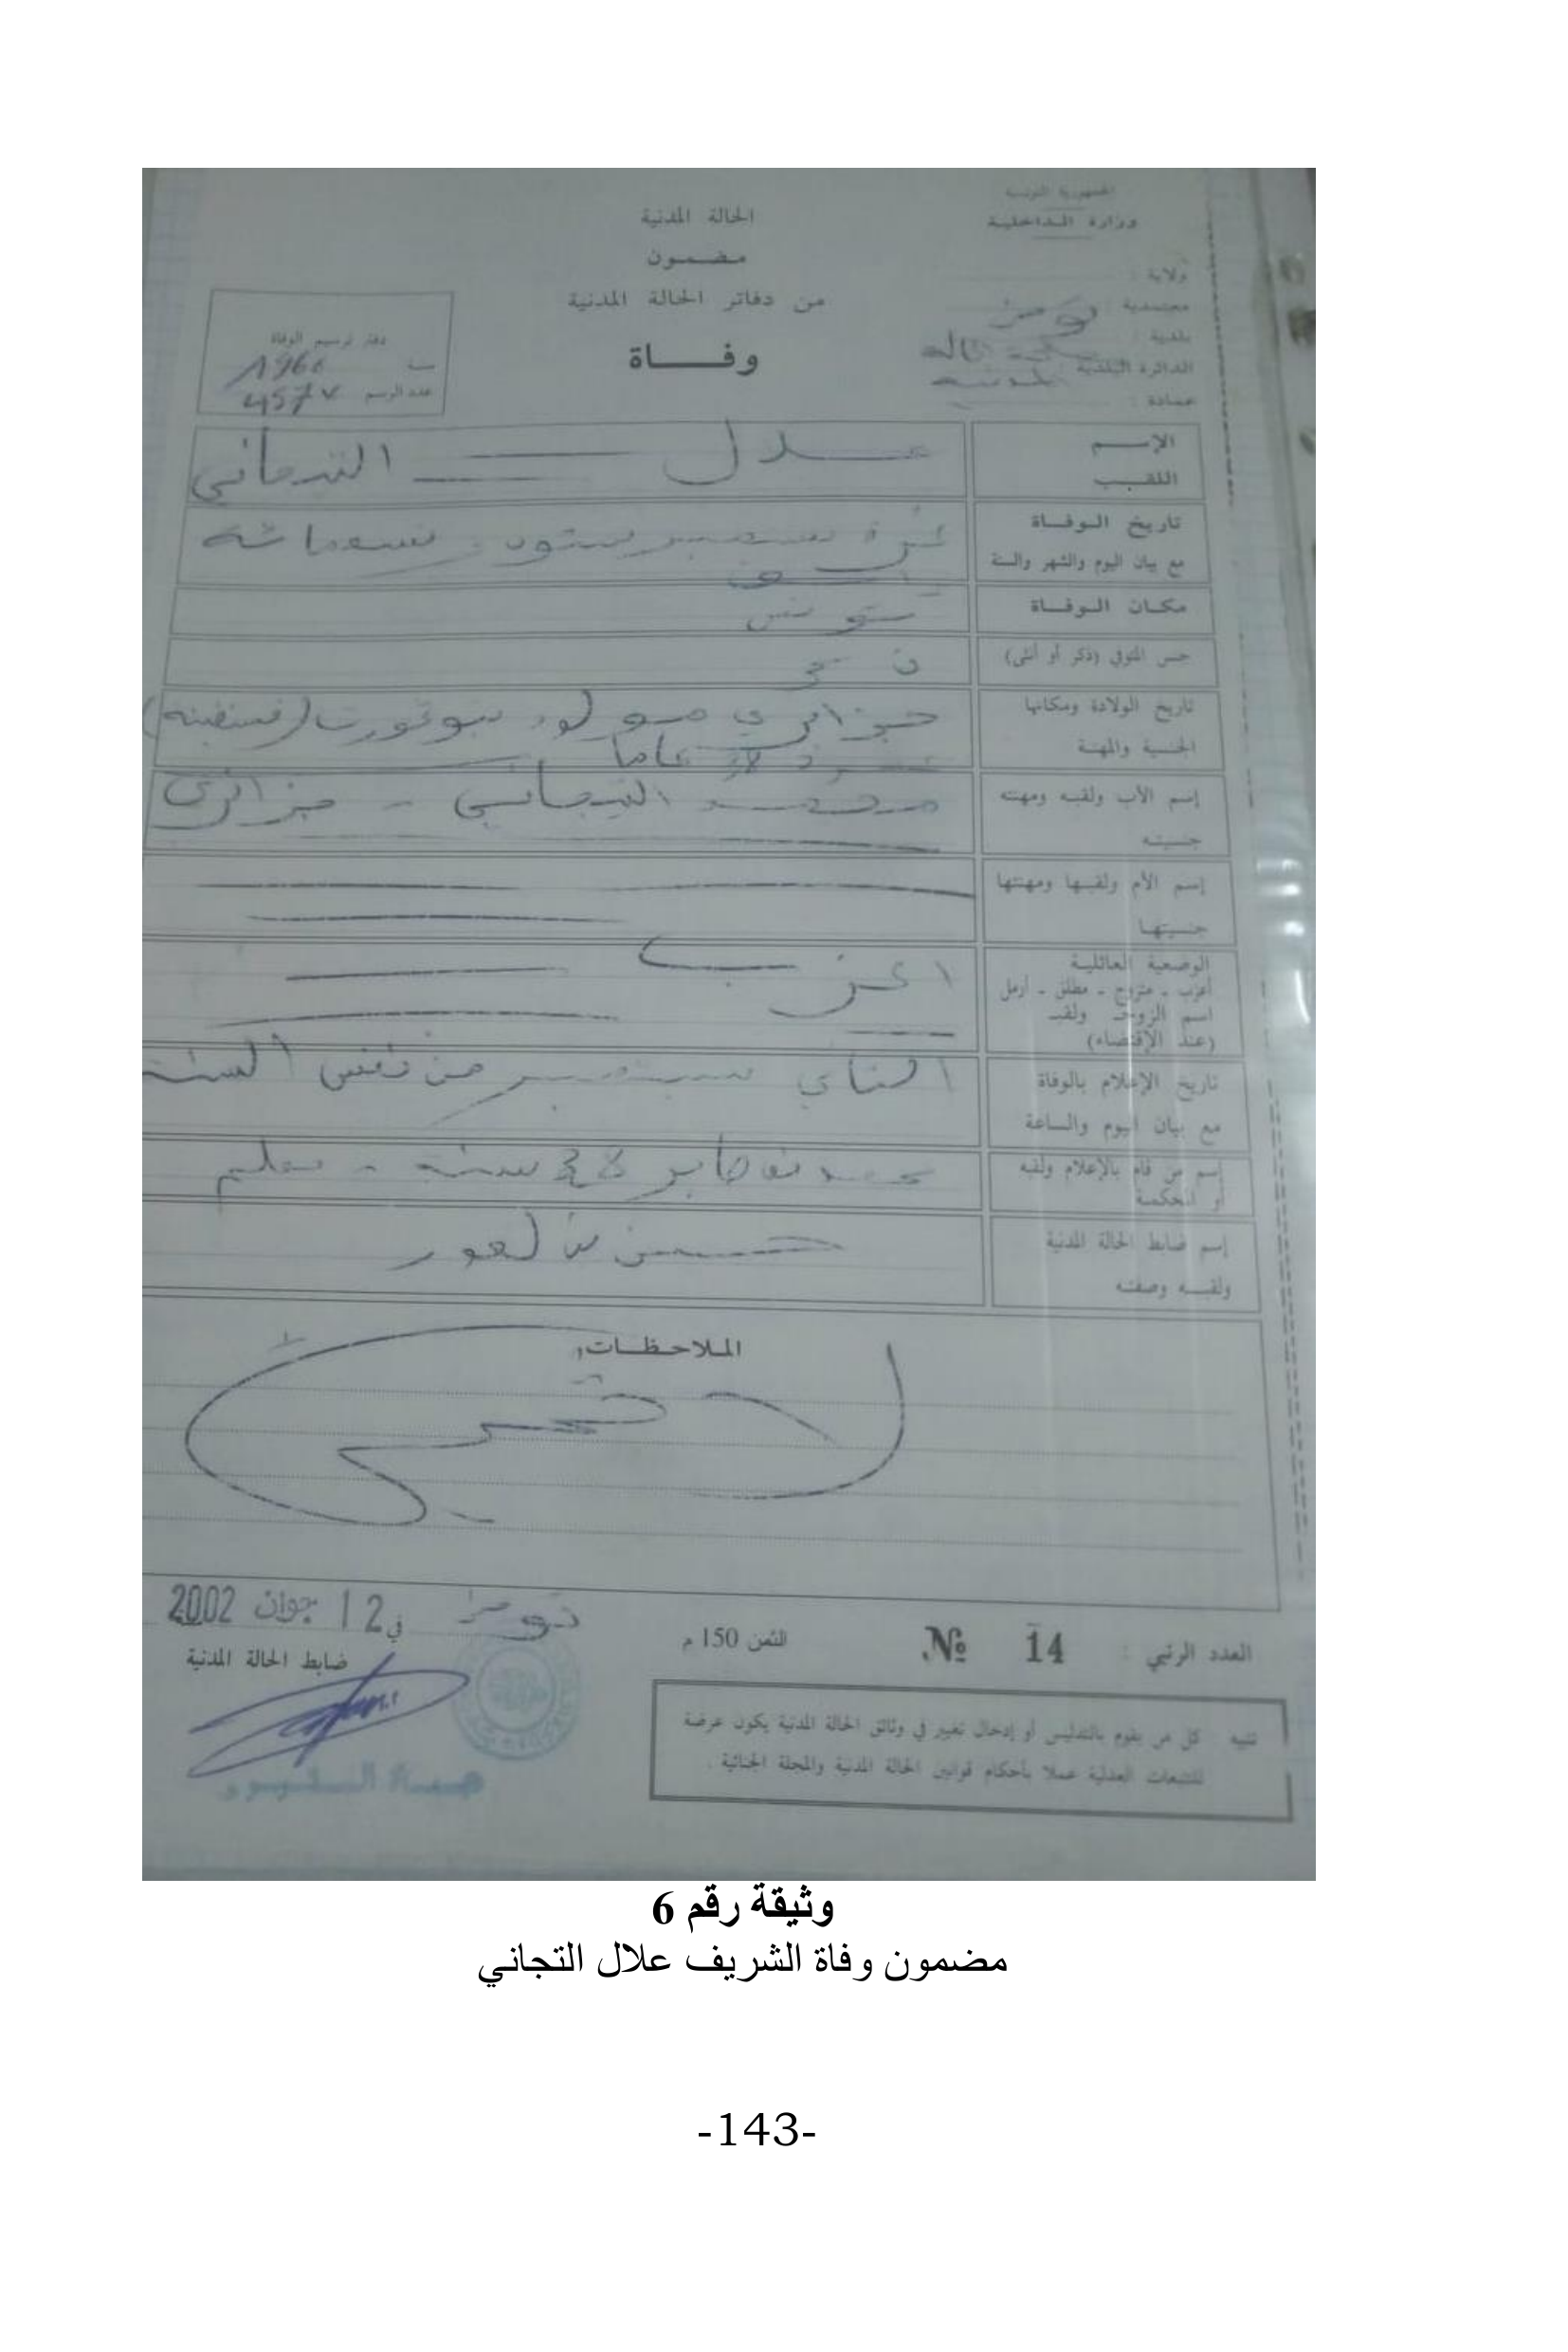 الجمهورية التونسية
وزارة الداخلية
الحالة المدنية
مضمون
من دفاتر الحالة المدنية
وفاة
ولاية :
معتمدية : تونس
بلدية :
الدائرة البلدية
عمادة :
دفتر ترسيم الوفاة
سنة 1960
عدد الرسم 457
الإسم
اللقب
علال التجاني
تاريخ الوفاة
مع بيان اليوم والشهر والسنة
غرة سبتمبر ستون وتسعمائة
وألف
مكان الوفاة
تونس
جنس المتوفى (ذكر أو أنثى)
ذكر
تاريخ الولادة ومكانها
الجنسية والمهنة
جزائري مولود بتوقورت (قسنطينة)
عاما
إسم الأب ولقبه ومهنته
جنسيته
محمد التجاني - جزائري
إسم الأم ولقبها ومهنتها
جنسيتها
الوضعية العائلية
أعزب - متزوج - مطلق - أرمل
اسم الزوج ولقبه
(عند الإقتضاء)
اعزب
تاريخ الإعلام بالوفاة
مع بيان اليوم والساعة
الثاني سبتمبر من نفس السنة
إسم من قام بالإعلام ولقبه
أو المحكمة
محمد سنة - معلم
إسم ضابط الحالة المدنية
ولقبه وصفته
حسن
الملاحظات
تونس في 12 جوان 2002
ضابط الحالة المدنية
العدد الرتبي : 14 №
الثمن 150 م
تنبيه كل من يقوم بالتدليس أو إدخال تغيير في وثائق الحالة المدنية يكون عرضة
للتتبعات العدلية عملا بأحكام قوانين الحالة المدنية والمجلة الجنائية .
وثيقة رقم 6
مضمون وفاة الشريف علال التجاني
-143-